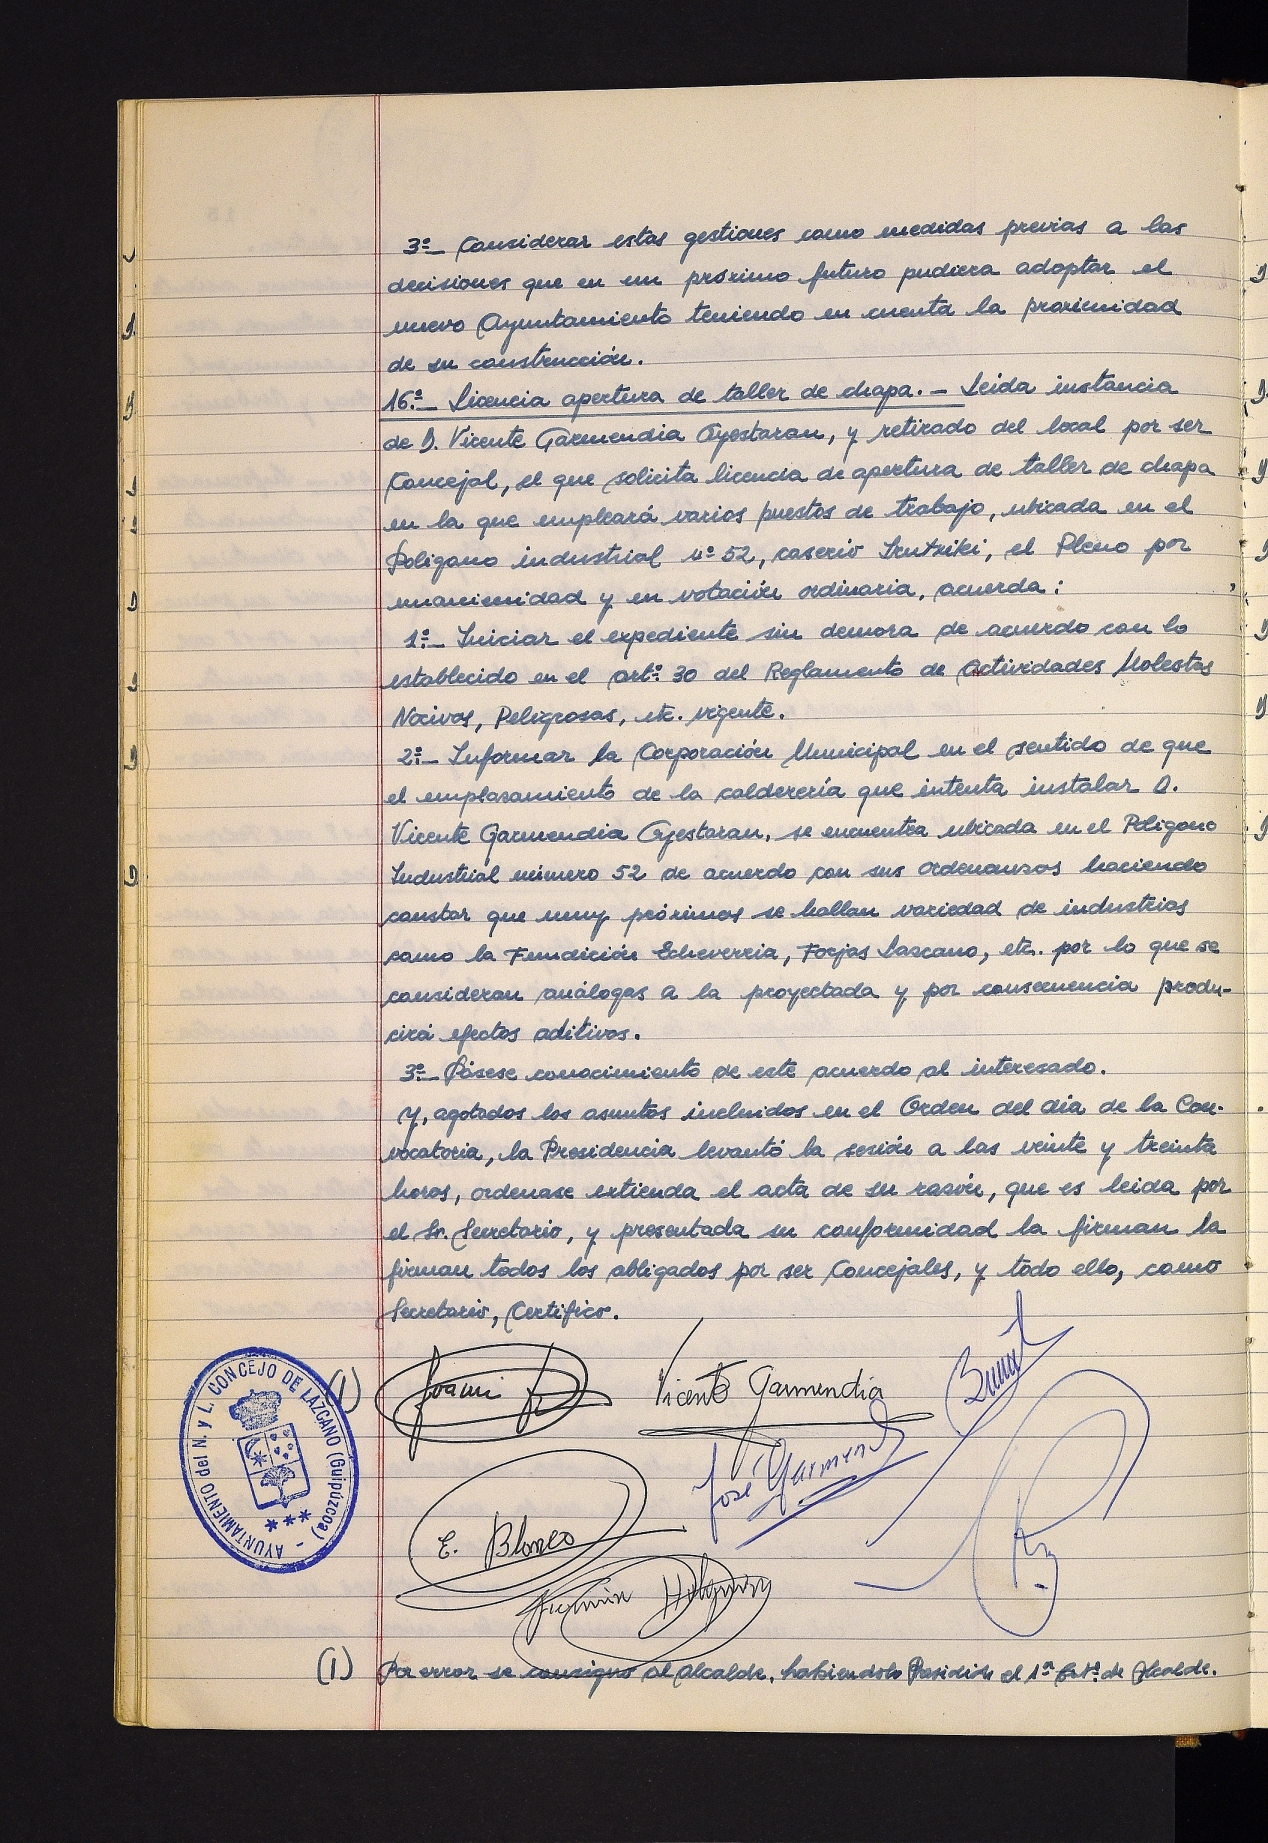 3º- Considerar estas gestiones como medidas previas a las
decisiones que en un próximo futuro pudiera adoptar el
nuevo Ayuntamiento teniendo en cuenta la proximidad
de su construcción.
16º- Licencia apertura de taller de chapa.- Leida instancia
de D. Vicente Garmendia Ayestaran, y retirado del local por ser
Concejal, el que solicita licencia de apertura de taller de chapa
en la que empleará varios puestos de trabajo, ubicada en el
Poligono industrial nº 52, caserio, el Pleno por
unanimidad y en votación ordinaria, acuerda:
1º- Iniciar el expediente sin demora de acuerdo con lo
establecido en el artº 30 del Reglamento de Actividades Molestas
Nocivas, Peligrosas, etc. vigente.
2º- Informar la Corporación Municipal en el sentido de que
el emplasamiento de la calderería que intenta instalar D.
Vicente Garmendia Ayestaran, se encuentra ubicada en el Poligono
Industrial número 52 de acuerdo con sus ordenansas haciendo
constar que muy próximas se hallan variedad de industrias
como la Fundición Echeverria, Forjas Lascano, etc. por lo que se
consideran análogas a la proyectada y por consecuencia produ-
cirá efectos aditivos.
3º- Pásese conocimiento de este acuerdo al interesado.
Y, agotados los asuntos incluidos en el Orden del dia de la Con-
vocatoria, la Presidencia levantó la sesión a las veinte y treinta
horas, ordenase extienda el acta de su rasón, que es leida por
el Sr. Secretario, y presentada su conformidad la firman la
firman todos los obligados por ser Concejales, y todo ello, como
Secretario, Certifico.
(1)
Vicente Garmendia
José Garmendi
E. Blanco
AYUNTAMIENTO del N. y L. CONCEJO DE LAZCANO (Guipúzcoa)
(1) Por error se consigno al Alcalde, habiendolo Presidido el 1º de Alcalde.